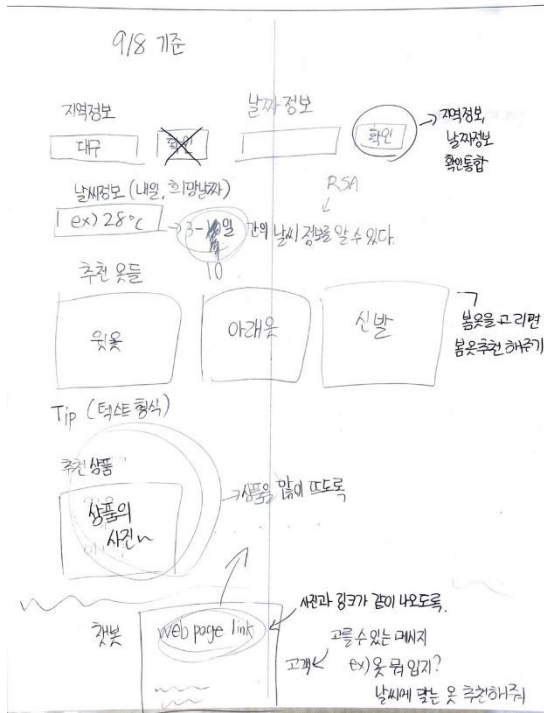 9/8 기준
지역정보
날짜정보
대구
확인
확인
→ 지역정보,
날짜정보
확인통합
날씨정보 (내일, 희망날짜)
RSA
ex) 28°C
→ 3-일 간의 날씨 정보를 알 수 있다.
10
추천 옷들
윗옷
아래옷
신발
봄옷을 고리면
봄옷추천 해주기
Tip (텍스트 형식)
추천상품
상품의
사진~
→ 상품을 많이 뜨도록
챗봇
web page link
사진과 링크가 같이 나오도록.
고를 수 있는 메시지
고객
ex) 옷 뭐 입지?
날씨에 맞는 옷 추천해줘